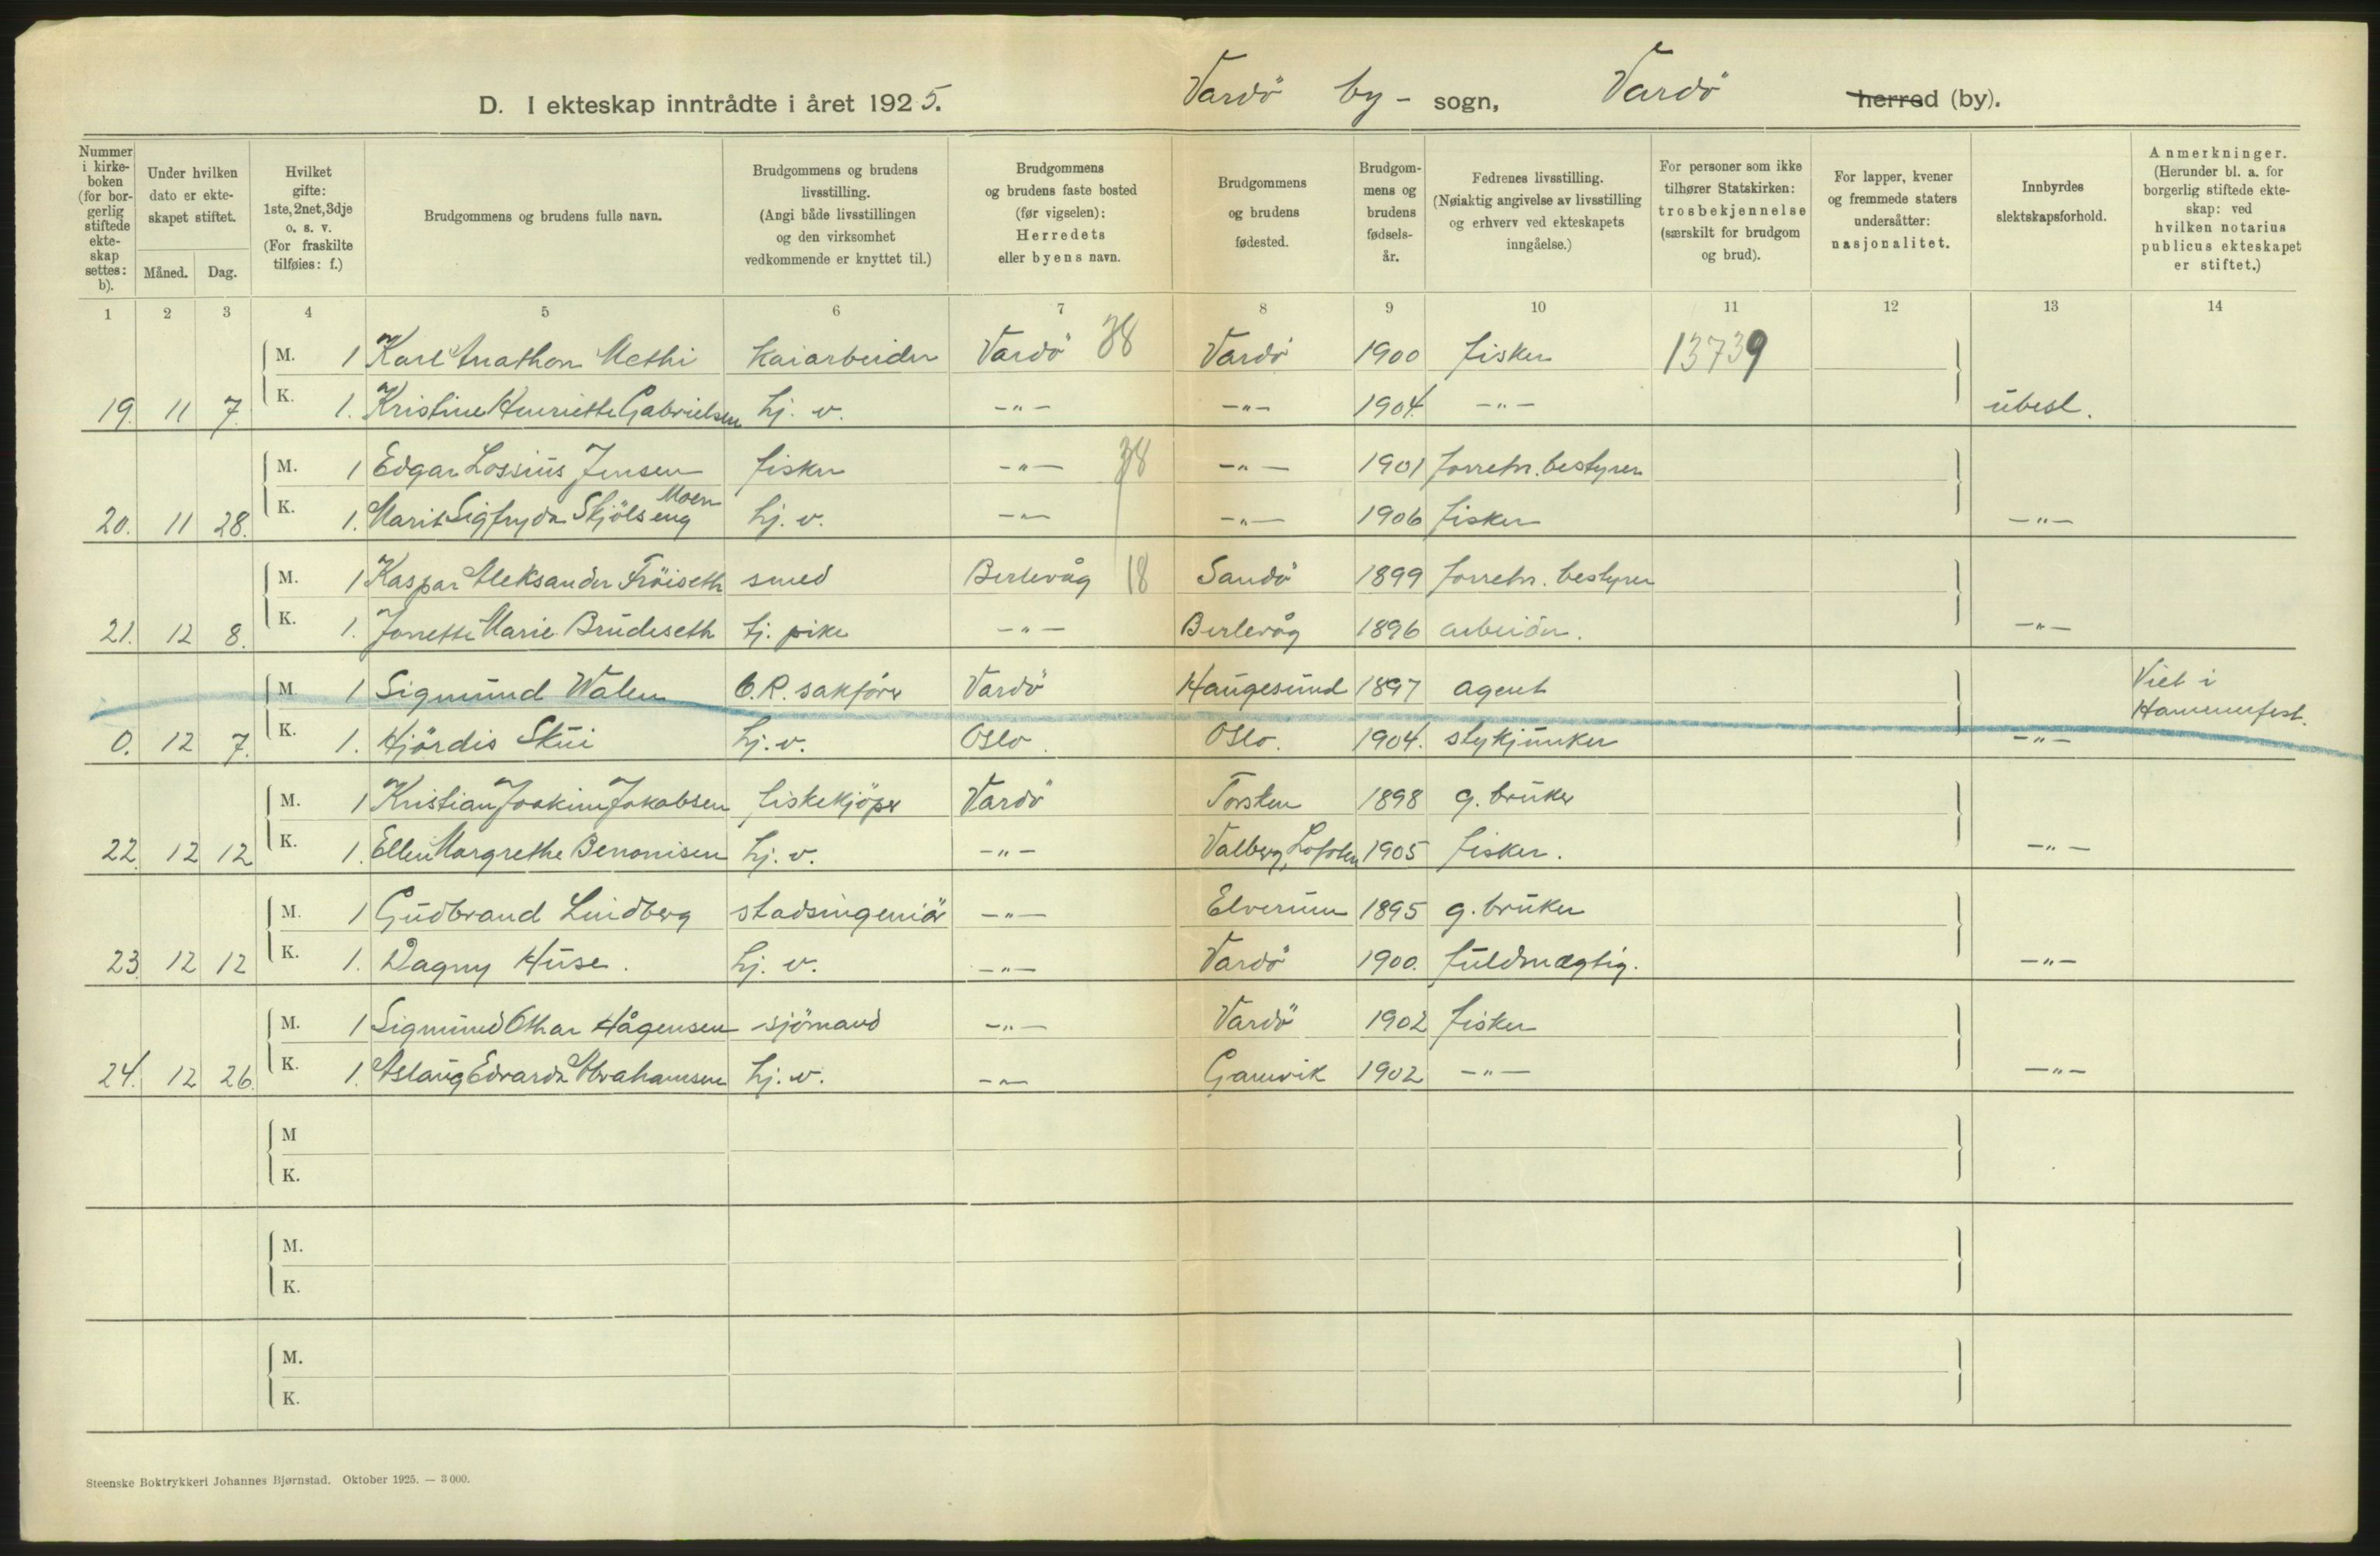 D. I ekteskap inntrådte i året 1925. Vardö by- sogn, Vardö herred (by).
Nummer i kirke-boken (for bor-gerlig stiftede ekte-skap settes: b).
Under hvilken dato er ekte-skapet stiftet.
Måned. Dag.
Hvilket gifte: 1ste, 2net, 3dje o. s. v. (For fraskilte tilføies: f.)
Brudgommens og brudens fulle navn.
Brudgommens og brudens livsstilling. (Angi både livsstillingen og den virksomhet vedkommende er knyttet til.)
Brudgommens og brudens faste bosted (før vigselen): Herredets eller byens navn.
Brudgommens og brudens fødested.
Brudgom-mens og brudens fødsels-år.
Fedrenes livsstilling. (Nøiaktig angivelse av livsstilling og erhverv ved ekteskapets inngåelse.)
For personer som ikke tilhører Statskirken: trosbekjennelse (særskilt for brudgom og brud).
For lapper, kvener og fremmede staters undersåtter: nasjonalitet.
Innbyrdes slektskapsforhold.
Anmerkninger. (Herunder bl. a. for borgerlig stiftede ekte-skap: ved hvilken notarius publicus ekteskapet er stiftet.)
1 2 3 4 5 6 7 8 9 10 11 12 13 14
M. 1 Karl Anathon Methi kaiarbeider Vardö 38 Vardö 1900 fisker 13739
19. 11 7. K. 1. Kristine Henriette Gabrielsen hj. v. -"- -"- 1904. -"- übesl.
M. 1 Edgar Lossius Jensen fisker -"- 38 -"- 1901 forretn. bestyrer
Moen
20. 11 28. K. 1. Marit Sigfryda Skjölseng hj. v. -"- -"- 1906 fisker -"-
M. 1 Kaspar Aleksander Fröiseth smed Berlevåg 18 Sandö 1899 forretn. bestyrer
21. 12 8. K. 1. Jonette Marie Brudeseth tj. pike -"- Berlevåg 1896 arbeider. -"-
M. 1 Sigmund Walen O.R. sakförer Vardö Haugesund 1897 agent Viet i
Hammerfest.
0. 12 7. K. 1. Hjördis Skui hj. v. Oslo. Oslo. 1904. stykjunker -"-
M. 1 Kristian Joakim Jakobsen fiskekjöper Vardö Torsken 1898 g. bruker
22. 12 12 K. 1. Ellen Margrethe Benonisen hj. v. -"- Valberg, Lofoten 1905 fisker. -"-
M. 1 Gudbrand Lindberg stadsingeniör -"- Elverum 1895 g. bruker
23. 12 12 K. 1. Dagny Huse. hj. v. -"- Vardö 1900. fuldmægtig. -"-
M. 1 Sigmund Othar Hågensen sjömand -"- Vardö 1902 fisker
24. 12 26. K. 1. Aslaug Edvarda Abrahamsen hj. v. -"- Gamvik 1902 -"- -"-
M
K.
M.
K.
M.
K.
Steenske Boktrykkeri Johannes Bjørnstad. Oktober 1925. — 3 000.